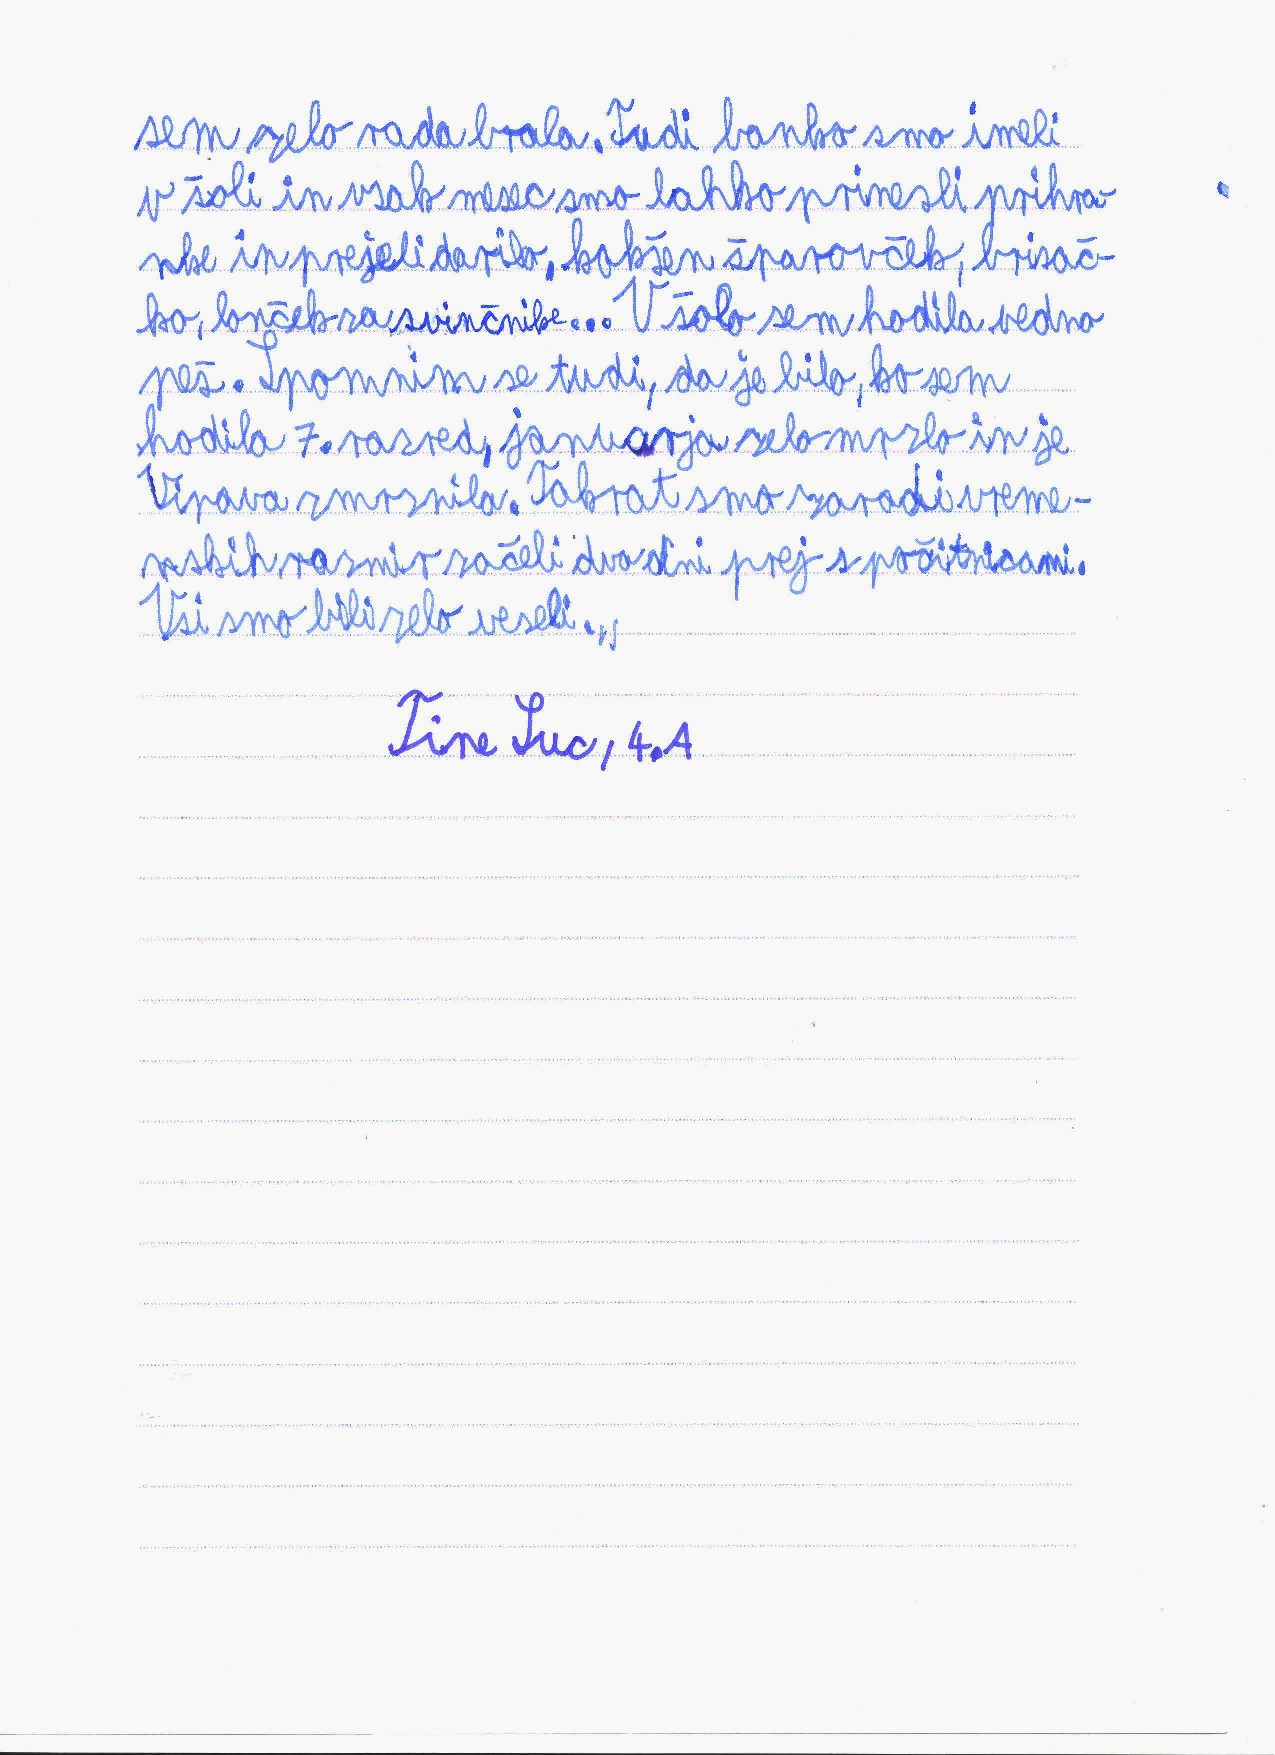 sem zelo rada brala. Tudi banko smo imeli
v šoli in vsak mesec smo lahko prinesli prihra-
nke in prejeli darilo, kakšen šparovček, brisač-
ko, lonček za svinčnike... V šolo sem hodila vedno
peš. Spomnim se tudi, da je bilo, ko sem
hodila 7. razred, januarja zelo mrzlo in je
Vipava zmrznila. Takrat smo zaradi vreme-
nskih razmir začeli dva dni prej s počitnicami.
Vsi smo bili zelo veseli.,,
Tine Suc, 4.A